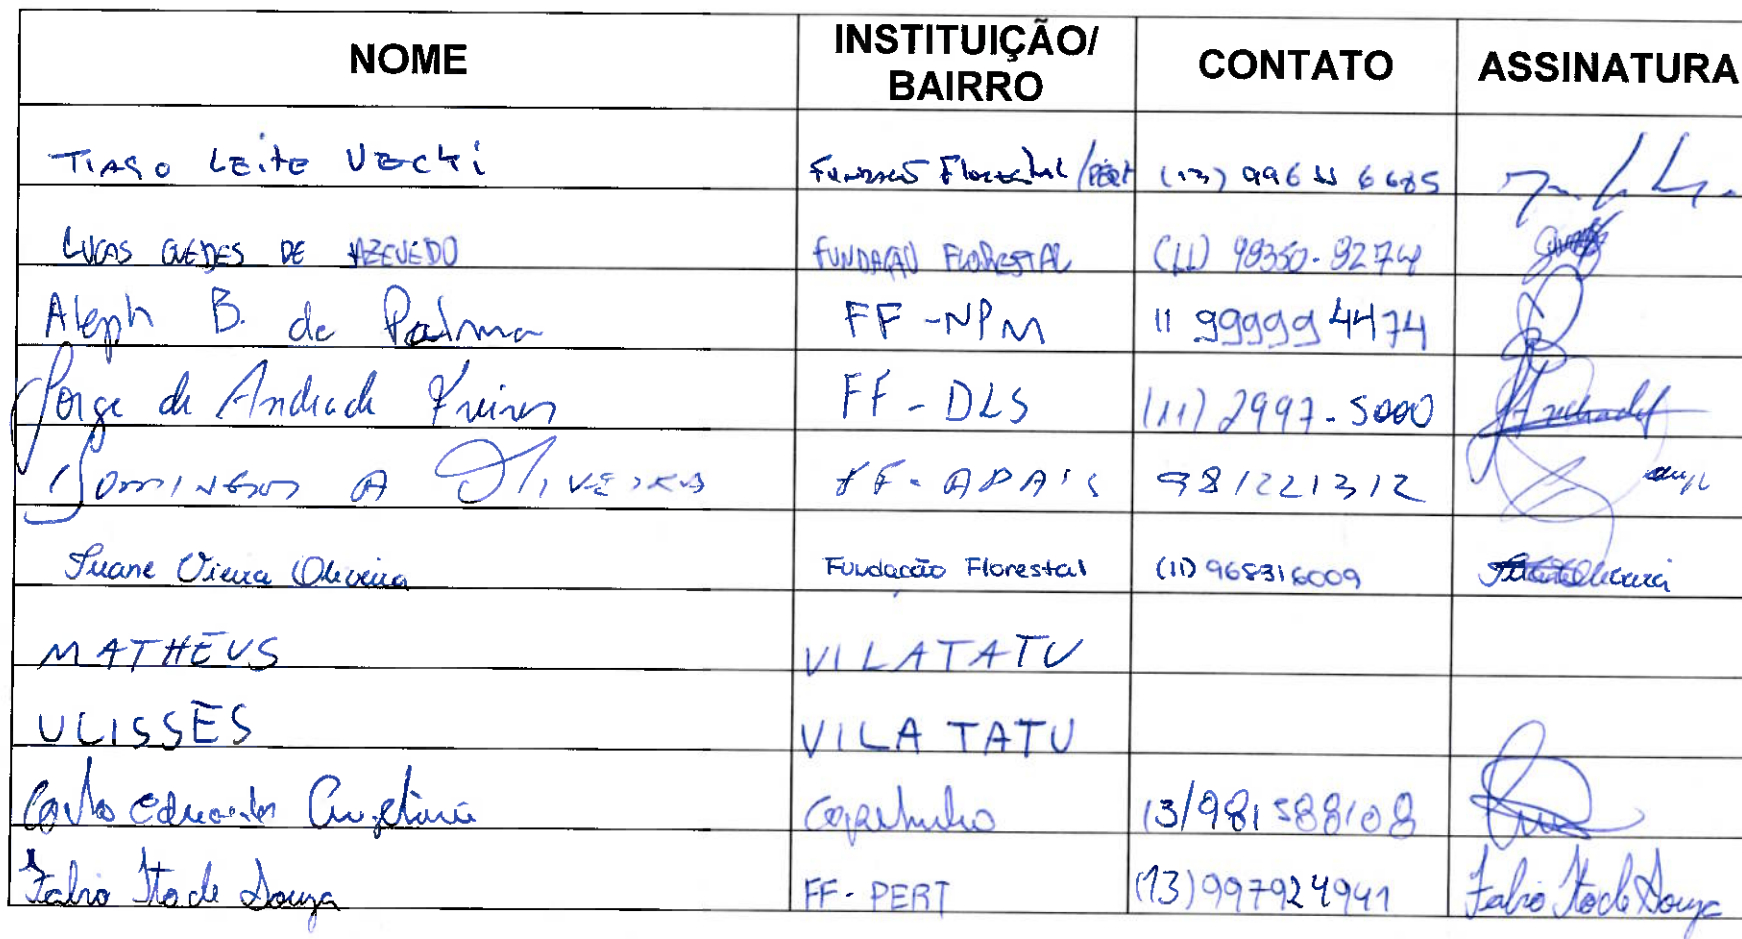 NOME INSTITUIÇÃO/ BAIRRO CONTATO ASSINATURA
TIAGO LEITE VECHI Florestal /PERT (13)
LUCAS GUEDES DE AZEVEDO FUNDAÇÃO FLORESTAL (11) 98350-9274
Aleph B. de Palma FF-NPM 11 99999 4474
Jorge de Andrade Freires FF-DLS (11) 2997-5000
DOMINGOS A OLIVEIRA FF- 981221312
Suane Vieira Oliveira Fundação Florestal (11) 968316009
MATHEUS VILA TATU
ULISSES VILA TATU
Carlos Eduardo 13/981588108
Fabio Ito de Souza FF-PERT (13) 997924941 Fabio Ito de Souza